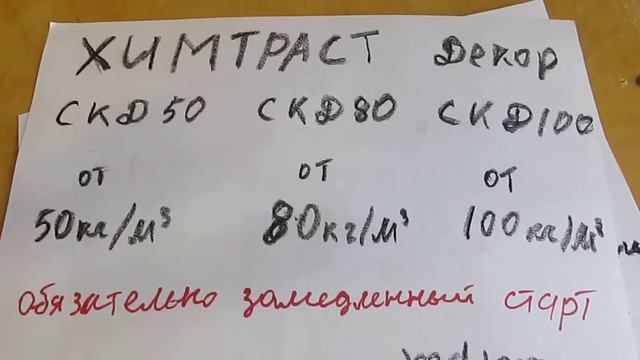 ХИМТРАСТ Декор
СКД50 СКД80 СКД100
от от от
50кг/м³ 80кг/м³ 100кг/м³
обязательно замедленный старт